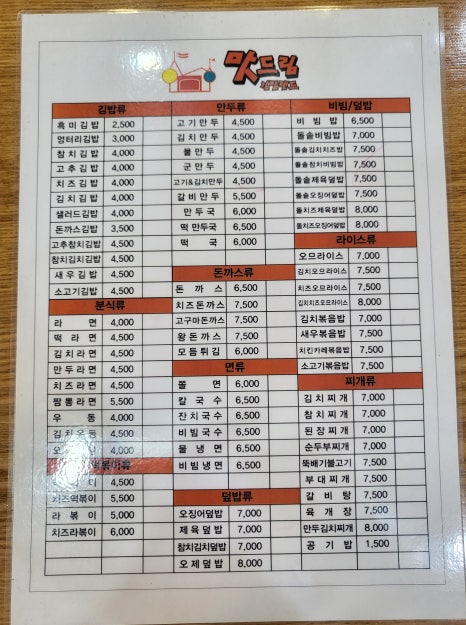 맛드림
김밥류
흑미김밥 2,500
엉터리김밥 3,000
참치김밥 4,000
고추김밥 4,000
치즈김밥 4,000
김치김밥 4,000
샐러드김밥 4,000
돈까스김밥 3,500
고추참치김밥 4,500
참치김치김밥 4,500
새우김밥 4,500
소고기김밥 4,500
분식류
라면 4,000
떡라면 4,500
김치라면 4,500
만두라면 4,500
치즈라면 4,500
짬뽕라면 5,500
우동 4,000
김치우동 4,500
4,500
4,500
치즈떡볶이 5,500
라볶이 5,000
치즈라볶이 6,000
만두류
고기만두 4,500
김치만두 4,500
물만두 4,500
군만두 4,500
고기&김치만두 4,500
갈비만두 5,500
만두국 6,000
떡만두국 6,500
떡국 6,000
돈까스류
돈까스 6,500
치즈돈까스 7,500
고구마돈까스 7,500
왕돈까스 7,500
모듬튀김 6,000
면류
쫄면 6,000
칼국수 6,500
잔치국수 6,500
비빔국수 6,500
물냉면 6,500
비빔냉면 6,500
덮밥류
오징어덮밥 7,000
제육덮밥 7,000
참치김치덮밥 7,000
오제덮밥 8,000
비빔/덮밥
비빔밥 6,500
돌솥비빔밥 7,000
돌솥김치치즈밥 7,500
돌솥참치비빔밥 7,500
돌솥제육덮밥 7,500
돌솥오징어덮밥 7,500
돌치즈제육덮밥 8,000
돌치즈오징어덮밥 8,000
라이스류
오므라이스 7,000
김치오므라이스 7,500
치즈오므라이스 7,500
김치치즈오므라이스 8,000
김치볶음밥 7,000
새우볶음밥 7,500
치킨카레볶음밥 7,500
소고기볶음밥 7,500
찌개류
김치찌개 7,000
참치찌개 7,000
된장찌개 7,000
순두부찌개 7,000
뚝배기불고기 7,500
부대찌개 7,500
갈비탕 7,500
육개장 7,500
만두김치찌개 8,000
공기밥 1,500